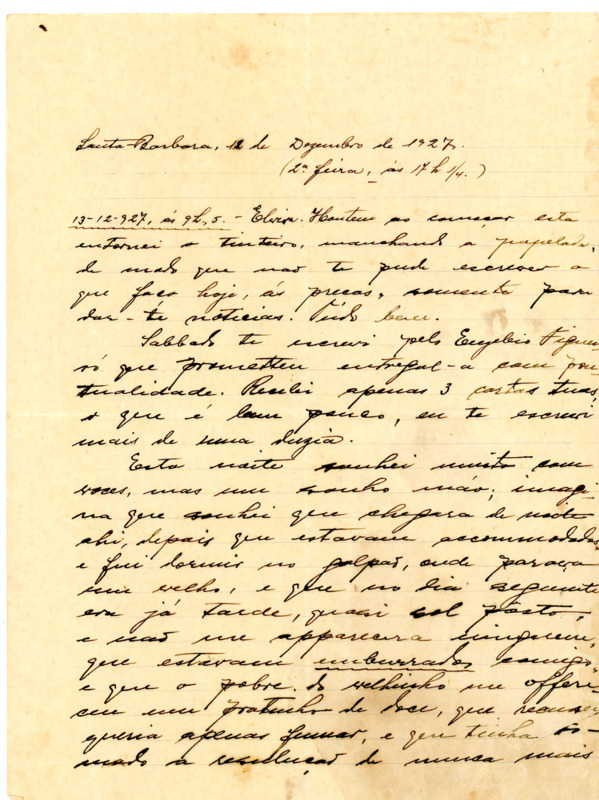 Santa Barbara, 12 de Dezembro de 1927.
(2ª feira, ás 17 h 1/4.)
13-12-927, ás 9h,5. - Elvira. Hontem ao começar esta
entornei o tinteiro, manchando a papelada,
de modo que não te pude escrever o
que faço hoje, ás pressas, somente para
dar-te noticias. Tudo bem.
Sabbado te escrevi pelo Eugebio Figuei
ró que prometteu entregal-a com pon
tualidade. Recibi apenas 3 cartas tuas,
o que é bem pouco, eu te escrevi
mais de uma duzia.
Esta noite sonhei muito com
voces, mas um sonho máo; imagi
na que sonhei que chegara de noite
ahi, depois que estavam accommodadas
e fui dormir no galpão, onde parava
um velho, e que no dia seguinte
era já tarde, quasi sol posto,
e não me apparecera ninguem,
que estavam emburradas comigo,
e que o pobre do velhinho me offere
ceu um pratinho de doce, que recusei
queria apenas fumar, e que tinha to-
mado a resolução de nunca mais